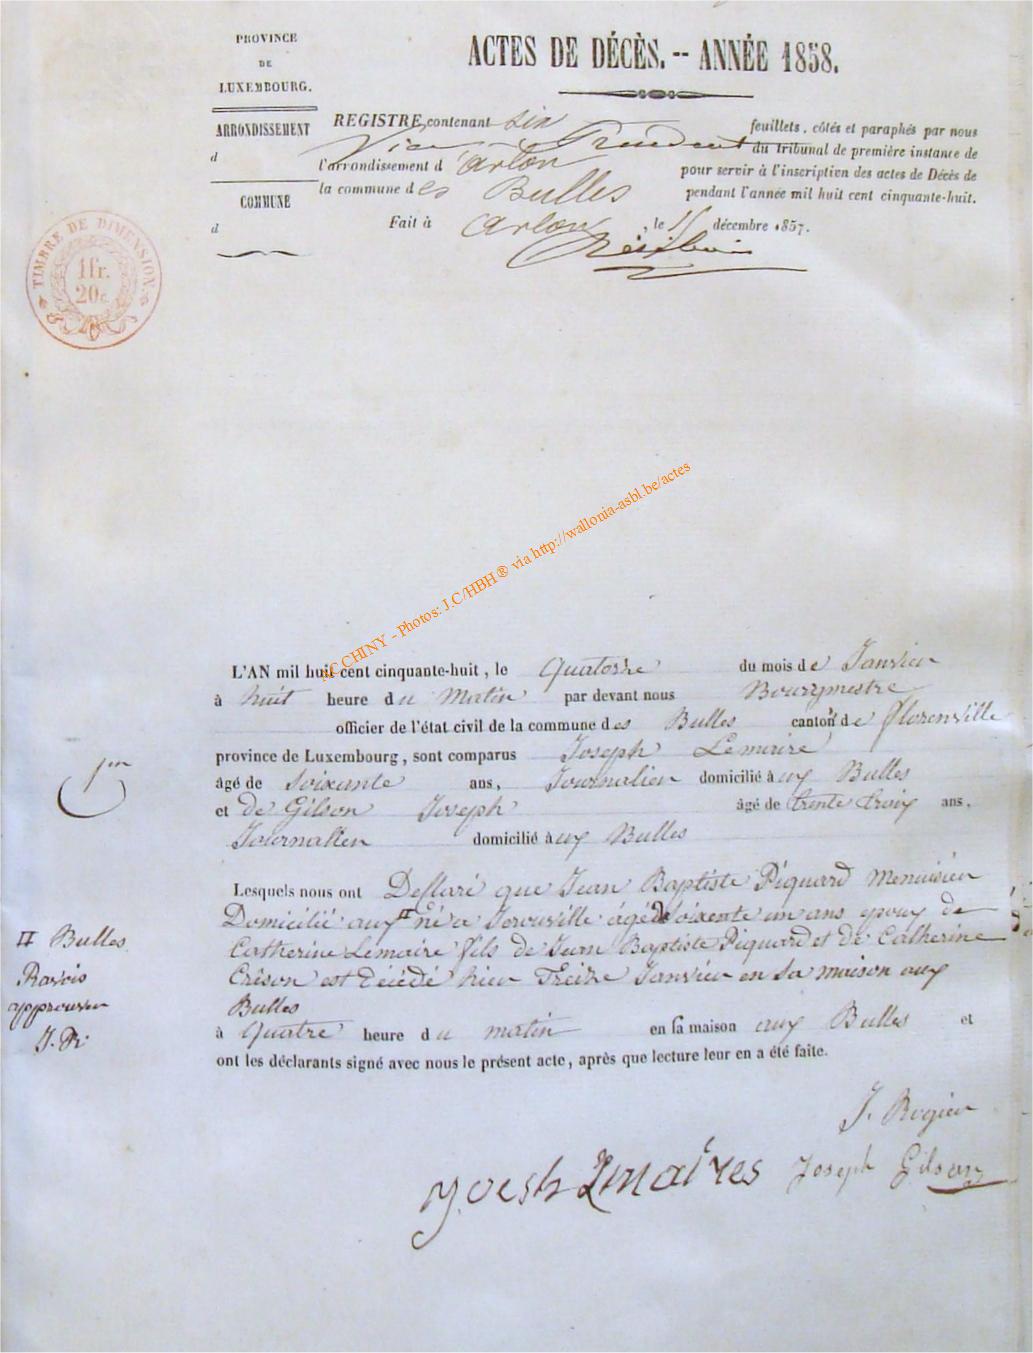 PROVINCE
DE
LUXEMBOURG.
ARRONDISSEMENT
d
COMMUNE
d
ACTES DE DÉCÈS. -- ANNÉE 1858.
REGISTRE, contenant six feuillets, côtés et paraphés par nous
Vice Président du tribunal de première instance de
l'arrondissement d'arlon pour servir à l'inscription des actes de Décès de
la commune des Bulles pendant l'année mil huit cent cinquante-huit.
Fait à arlon, le 15 décembre 1857.
TIMBRE DE DIMENSION.
1 fr.
20 c.
AC CHINY - Photos: J.C/HBH® via http://wallonia-asbl.be/actes
L'AN mil huit cent cinquante-huit, le Quatorze du mois de Janvier
à huit heure du Matin par devant nous Bourgmestre
officier de l'état civil de la commune des Bulles canton de florenville
province de Luxembourg, sont comparus Joseph Lemaire
âgé de Soixante ans, Journalier domicilié à ux Bulles
et de Gilson Joseph âgé de trente trois ans,
Journallier domicilié à ux Bulles
1er
Lesquels nous ont Deklaré que Jean Baptiste Piquard Menuisier
Domicilié aux # né a Torouville âgé de Soixente un ans epoux de
Catherine Lemaire fils de Jean Baptiste Piquard et de Catherine
Créson est décédé hier Treize Janvier en Sa maison aux
Bulles
à Quatre heure du matin en sa maison aux Bulles et
ont les déclarants signé avec nous le présent acte, après que lecture leur en a été faite.
# Bulles
approuver
J. R.
J. Rogier
Joseph Gilson